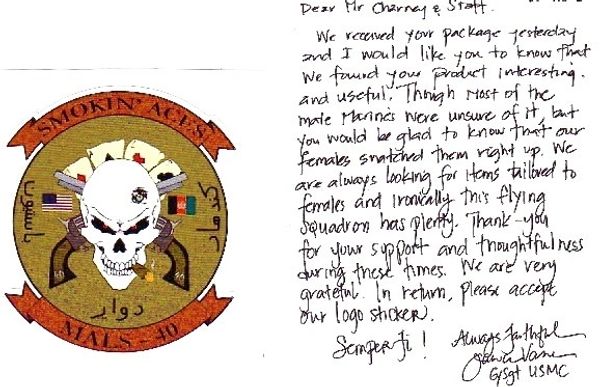 SMOKIN' ACES
دوار
MALS - 40
Dear Mr Charney & Staff.
We received your package yesterday
and I would like you to know that
we found your product interesting.
and useful. Though most of the
male Marines were unsure of it, but
you would be glad to know that our
females snatched them right up. We
are always looking for items tailored to
females and ironically this flying
squadron has plenty. Thank-you
for your support and thoughtfulness
during these times. We are very
grateful. In return, please accept
our logo sticker.
Semper Fi!
Always faithful
GySgt USMC